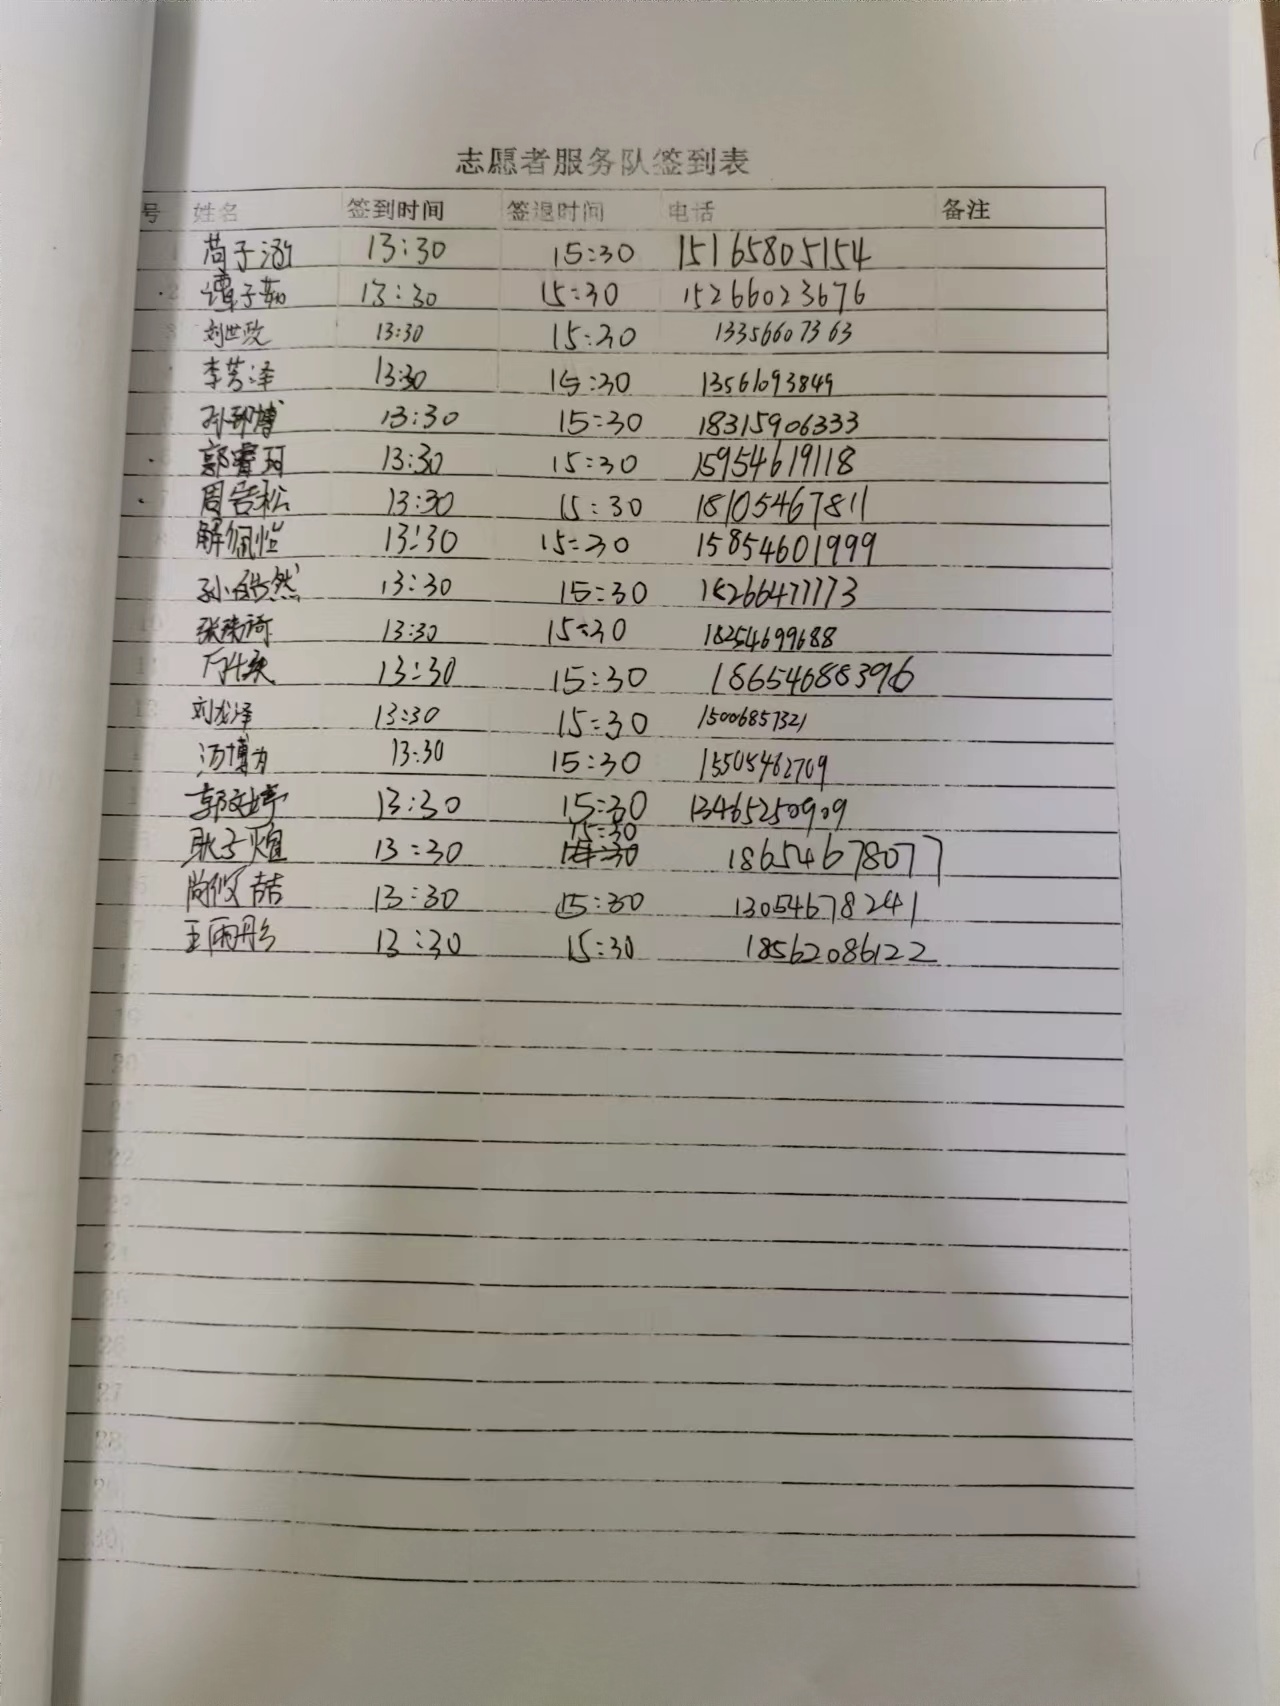 志愿者服务队签到表
号 姓名 签到时间 签退时间 电话 备注
苘子涵 13:30 15:30 15165805154
2 谭子茹 13:30 15:30 15266023676
3 刘世政 13:30 15:30 13356607363
李芸泽 13:30 15:30 13561093849
孙郡博 13:30 15:30 18315906333
郭睿珂 13:30 15:30 15954619118
7 周岩松 13:30 15:30 18105467811
8 解佩恺 13:30 15:30 15854601999
孙皓然 13:30 15:30 15266477773
10 张瑛琦 13:30 15:30 18254699688
11 13:30 15:30 18654688396
12 刘龙泽 13:30 15:30 15006857321
汤博为 13:30 15:30 15505462709
郭文婷 13:30 15:30 13465250909
15:30
耿子煊 13:30 18654678077
尚倪喆 13:30 15:30 13054678241
王雨彤 13:30 15:30 18562086122
19
20
22
23
26
27
28
29
30